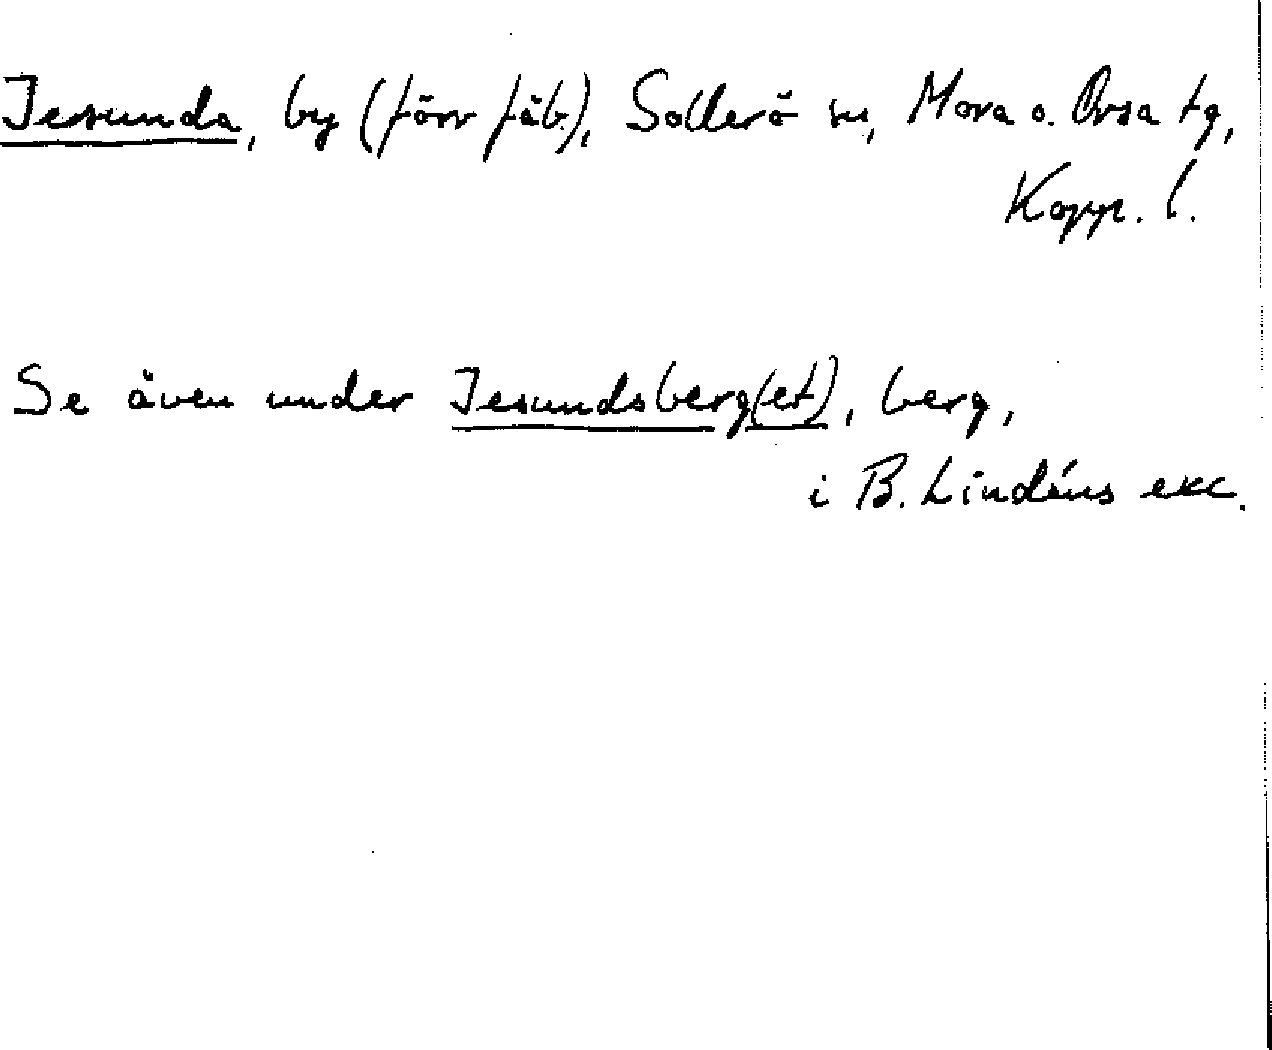 Jesunda, by (förr fäb.), Sollerö sn, Mora o. Orsa tg,
Kopp. l.
Se även under Jesundsberg(et), berg,
i B. Lindéns exc.